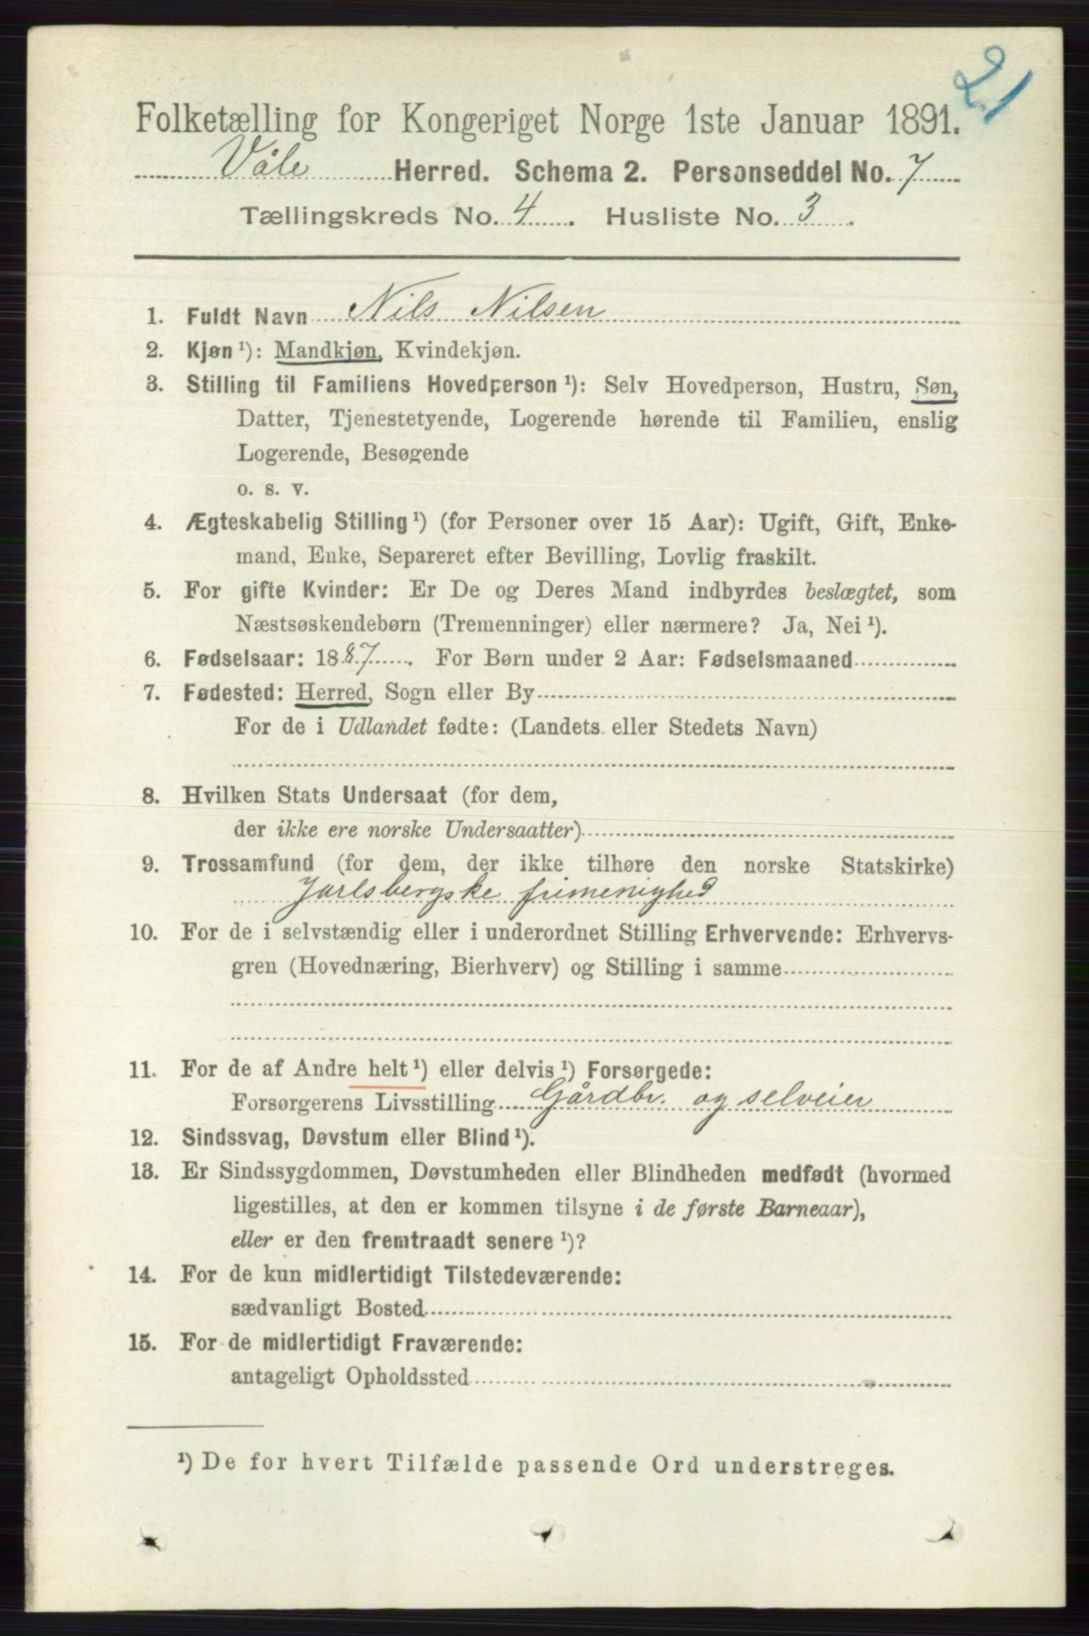 21
Folketælling for Kongeriget Norge 1ste Januar 1891.
Våle Herred. Schema 2. Personseddel No. 7
Tællingskreds No. 4. Husliste No. 3.
1. Fuldt Navn Nils Nilsen
2. Kjøn ¹): Mandkjøn, Kvindekjøn.
3. Stilling til Familiens Hovedperson ¹): Selv Hovedperson, Hustru, Søn,
Datter, Tjenestetyende, Logerende hørende til Familien, enslig
Logerende, Besøgende
o. s. v.
4. Ægteskabelig Stilling ¹) (for Personer over 15 Aar): Ugift, Gift, Enke-
mand, Enke, Separeret efter Bevilling, Lovlig fraskilt.
5. For gifte Kvinder: Er De og Deres Mand indbyrdes beslægtet, som
Næstsøskendebørn (Tremenninger) eller nærmere? Ja, Nei ¹).
6. Fødselsaar: 1887. For Børn under 2 Aar: Fødselsmaaned
7. Fødested: Herred, Sogn eller By
For de i Udlandet fødte: (Landets eller Stedets Navn)
8. Hvilken Stats Undersaat (for dem,
der ikke ere norske Undersaatter)
9. Trossamfund (for dem, der ikke tilhøre den norske Statskirke)
Jarlsbergske frimenighed
10. For de i selvstændig eller i underordnet Stilling Erhvervende: Erhvervs-
gren (Hovednæring, Bierhverv) og Stilling i samme
11. For de af Andre helt ¹) eller delvis ¹) Forsørgede:
Forsørgerens Livsstilling Gårdbr. og selveier
12. Sindssvag, Døvstum eller Blind ¹).
13. Er Sindssygdommen, Døvstumheden eller Blindheden medfødt (hvormed
ligestilles, at den er kommen tilsyne i de første Barneaar),
eller er den fremtraadt senere ¹)?
14. For de kun midlertidigt Tilstedeværende:
sædvanligt Bosted
15. For de midlertidigt Fraværende:
antageligt Opholdssted
¹) De for hvert Tilfælde passende Ord understreges.